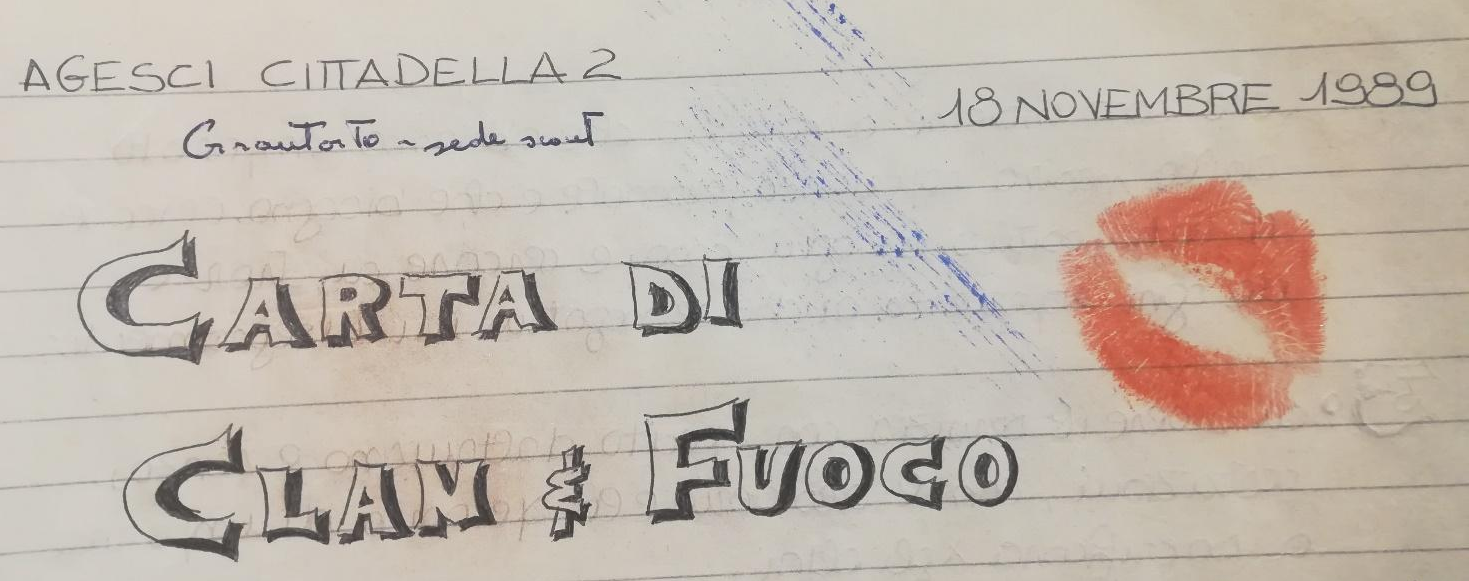 AGESCI CITTADELLA 2
18 NOVEMBRE 1989
Grantorto - sede scout
CARTA DI
CLAN & FUOCO